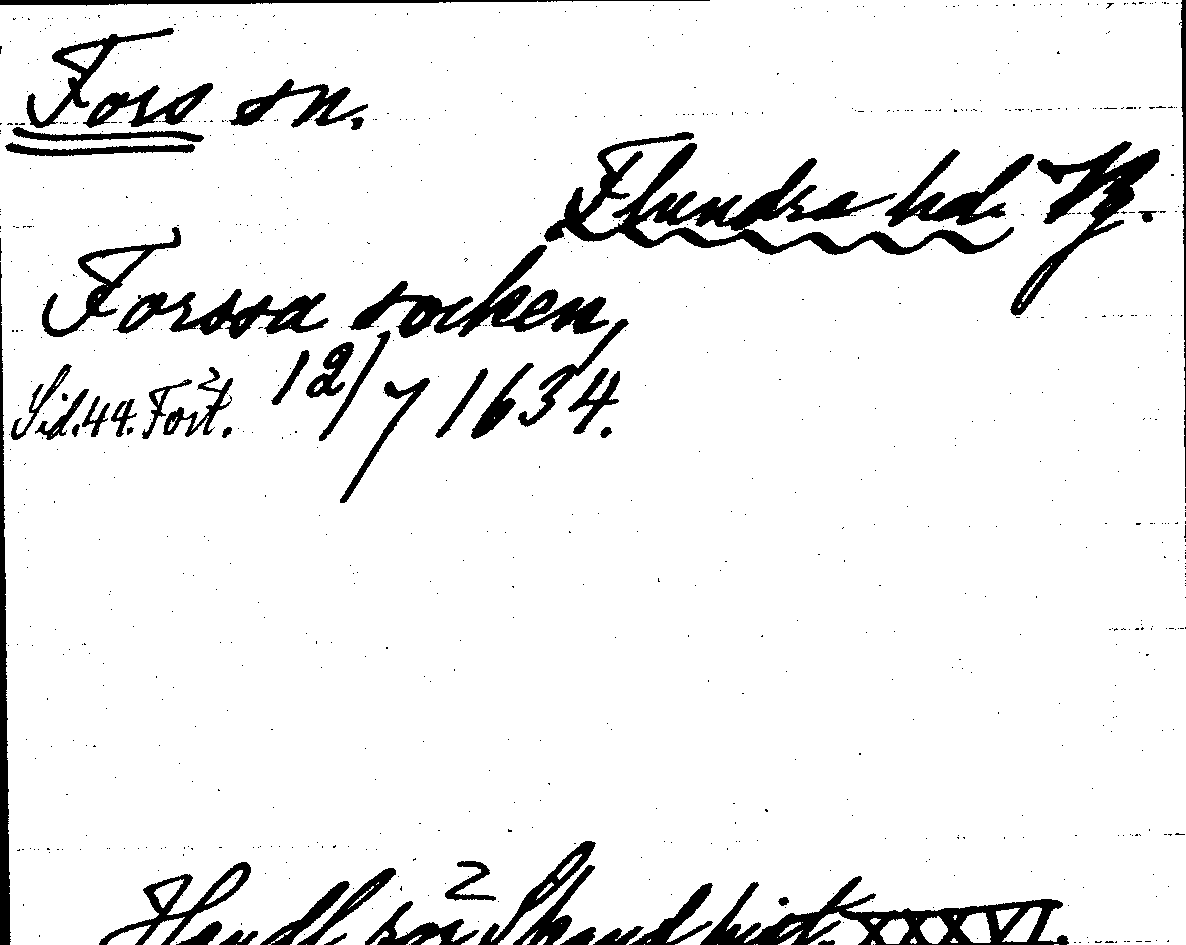 Fors sn.
Flundre hd. Vg.
Forssa socken,
Sid. 44. Fört. 12/7 1634.
Handl. rör. Skand. hist. XXXVI.